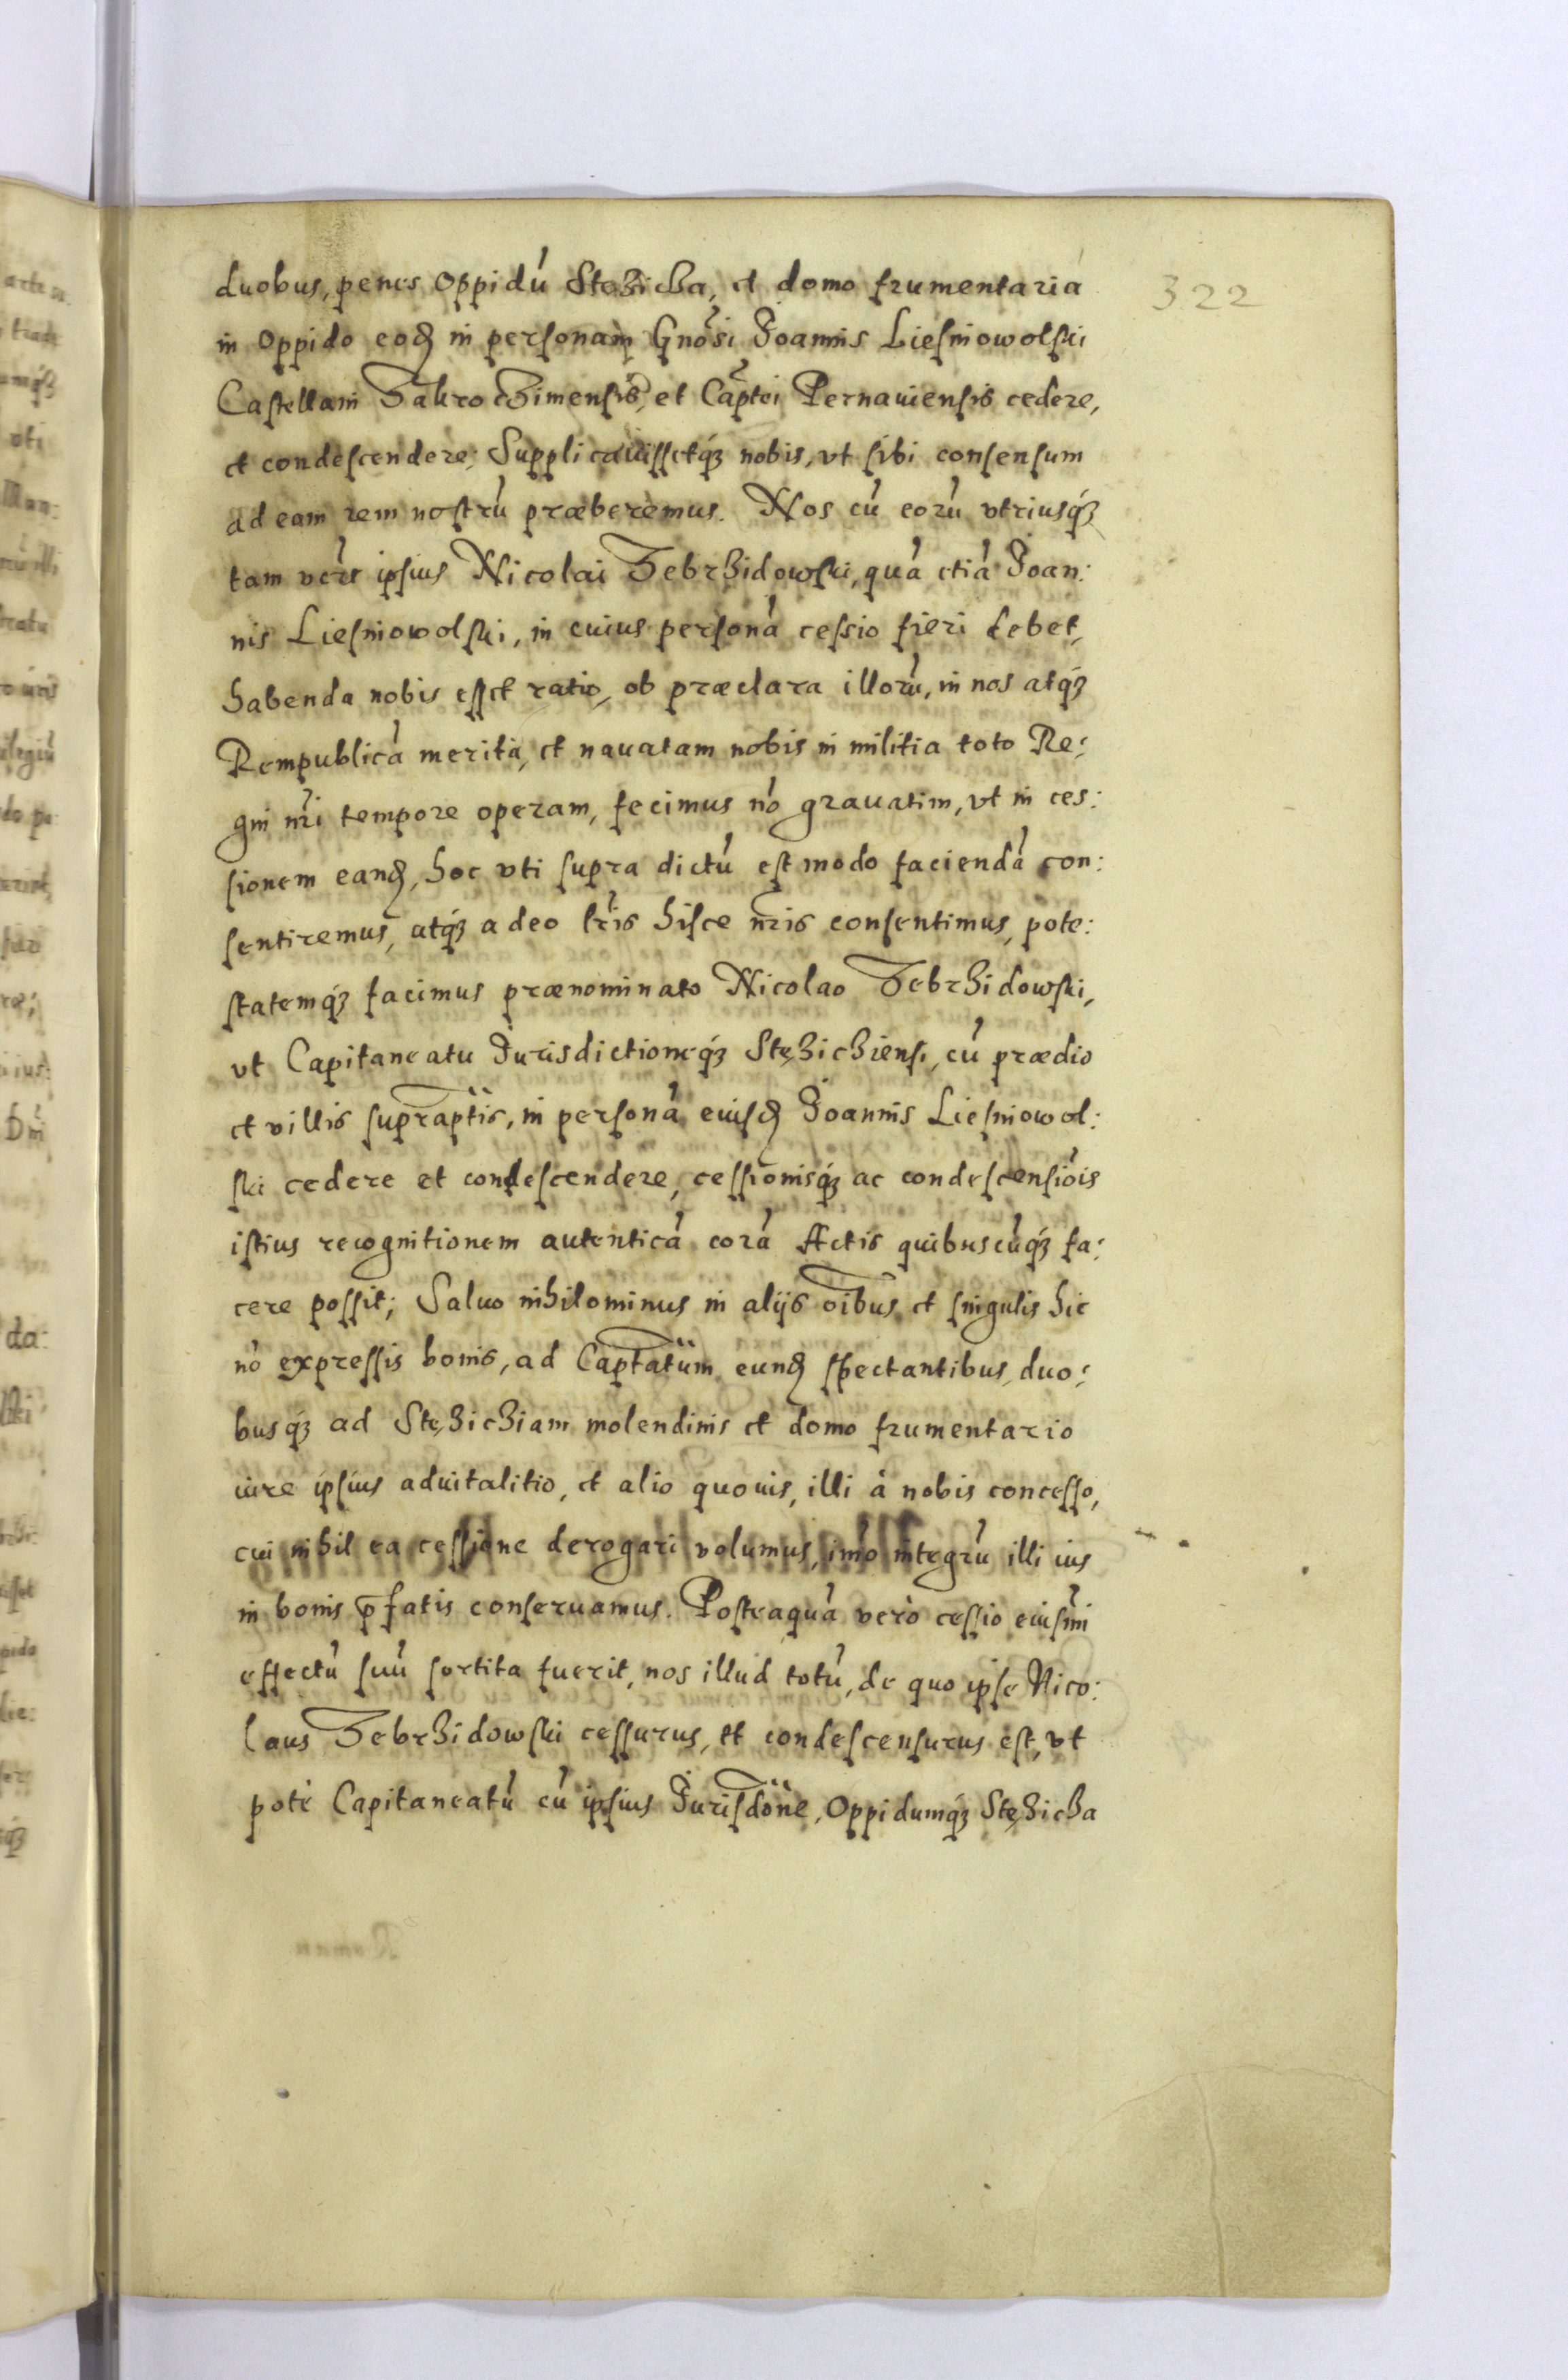 duobus, penes Oppidū Stężicha, et domo frumentaria 322
in Oppido eodę in personam Gnōsi Joannis Liesniowolski
Castellani Zakroczimensis, et Captei Pernauiensis cedere,
et condescendere; Supplicauissetq́ʒ nobis, vt sibi consensum
ad eam rem nostrū præberemus. Nos cū eorū vtriusq́ʒ
tam ipsius Nicolai Zebrzidowski, quā etiā Joan:
nis Liesniowolski, in cuius personā cessio fieri debet,
habenda nobis esset ratio, ob præclara illorū, in nos atq́ʒ
Rempublicā merita, et nauatam nobis in militia toto Re:
gni nr̄i tempore operam, fecimus nō grauatim, vt in ces:
sionem eandę, hoc vti supra dictū est modo faciendā con:
sentiremus, atq́ʒ adeo lr̄is hisce nr̄is consentimus, pote:
statemq́ʒ facimus prænominato Nicolao Zebrzidowski,
vt Capitaneatu Jurisdictioneq́ʒ Stężichiensi, cū prædio
et villis supraptis, in personā eiusdę Joannis Liesniowol:
ski cedere et condescendere, cessionisq́ʒ ac condescensiōis
istius recognitionem autenticā corā Actis quibuscūq́ʒ fa:
cere possit; Saluo nihilominus in alijs oībus et singulis hic
nō expressis bonis, ad Captatum eundę spectantibus, duo:
busq́ʒ ad Stężichiam molendinis et domo frumentario
iure ipsius aduitalitio, et alio quouis, illi à nobis concesso,
cui nihil ea cessione derogari volumus, imò integrū illi ius
in bonis p̄fatis conseruamus. Posteaquā verò cessio eiusm̄i
effectū suū sortita fuerit, nos illud totū, de quo ipse Nico:
laus Zebrzidowski cessurus, et condescensurus est, vt
potè Capitaneatū cū ipsius Jurisdōne, Oppidumq́ʒ Stężicha